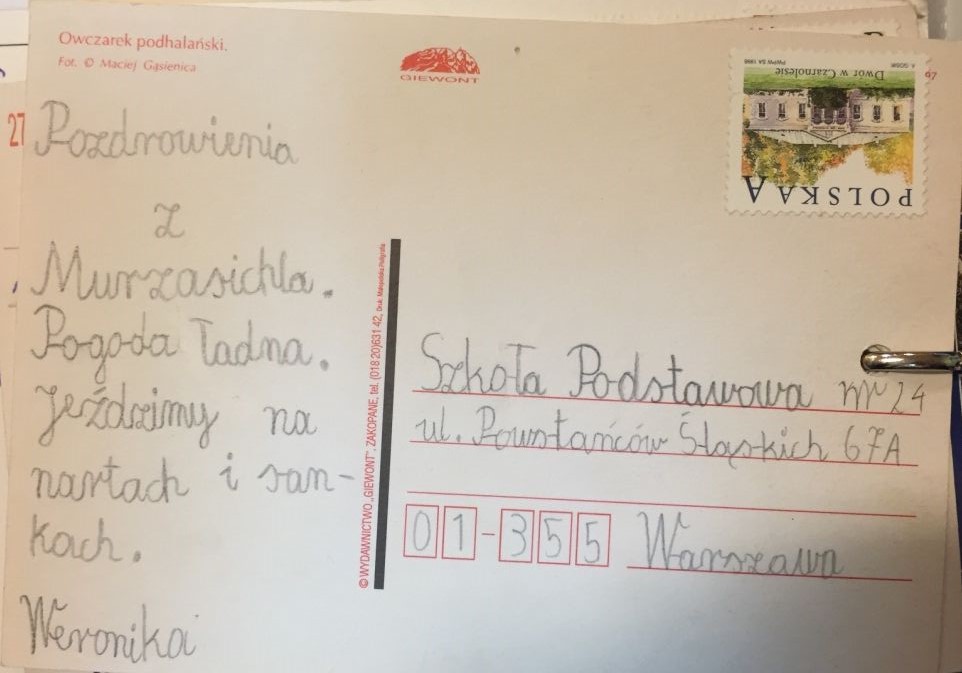 Owczarek podhalański.
Fot. © Maciej Gąsienica
GIEWONT
97
27
POLSKA A
Dwór w Czarnolesie
PWPW SA 1998
Pozdrowienia
z
Murzasichla.
Pogoda ładna.
Jeździmy na
nartach i san-
kach.
Weronika
© WYDAWNICTWO „GIEWONT", ZAKOPANE, tel. (018 20)631 42, Druk: Małopolska Poligrafia
Szkoła Podstawowa nr 24
ul. Powstańców Śląskich 67A
01-355 Warszawa